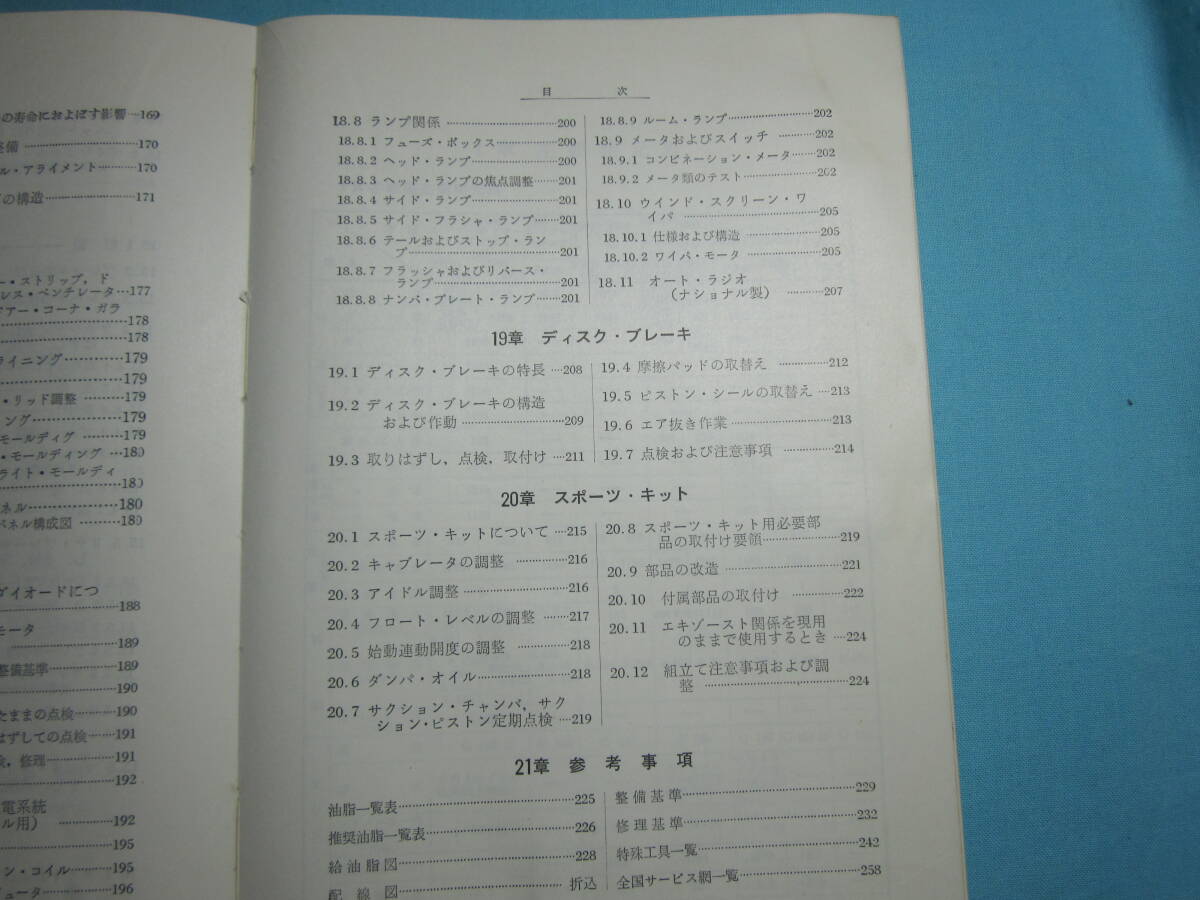 の寿命におよぼす影響…169
備…170
ル・アライメント…170
の構造…171
ー・ストリップ,ド
レス・ベンチレータ…177
ドアー・コーナ・ガラ
…178
…178
ライニング…179
…179
・リッド調整…179
ング…179
モールディグ…179
・モールディング…180
ライト・モールディ
…180
ネル…180
パネル構成図…180
ダイオードにつ
…188
モータ
…189
整備基準…189
…190
たままの点検…190
はずしての点検…191
検,修理…191
…192
電系統
ル用)…192
…195
ン・コイル…195
ュータ…196
目次
18.8 ランプ関係…200
18.8.1 フューズ・ボックス…200
18.8.2 ヘッド・ランプ…200
18.8.3 ヘッド・ランプの焦点調整…201
18.8.4 サイド・ランプ…201
18.8.5 サイド・フラシャ・ランプ…201
18.8.6 テールおよびストップ・ラン
プ…201
18.8.7 フラッシャおよびリバース・
ランプ…201
18.8.8 ナンバ・プレート・ランプ…201
18.8.9 ルーム・ランプ…202
18.9 メータおよびスイッチ…202
18.9.1 コンビネーション・メータ…202
18.9.2 メータ類のテスト…202
18.10 ウインド・スクリーン・ワ
イパ…205
18.10.1 仕様および構造…205
18.10.2 ワイパ・モータ…205
18.11 オート・ラジオ
(ナショナル製)…207
19章 ディスク・ブレーキ
19.1 ディスク・ブレーキの特長…208
19.2 ディスク・ブレーキの構造
および作動…209
19.3 取りはずし,点検,取付け…211
19.4 摩擦パッドの取替え…212
19.5 ピストン・シールの取替え…213
19.6 エア抜き作業…213
19.7 点検および注意事項…214
20章 スポーツ・キット
20.1 スポーツ・キットについて…215
20.2 キャブレータの調整…216
20.3 アイドル調整…216
20.4 フロート・レベルの調整…217
20.5 始動連動開度の調整…218
20.6 ダンパ・オイル…218
20.7 サクション・チャンバ,サク
ション・ピストン定期点検…219
20.8 スポーツ・キット用必要部
品の取付け要領…219
20.9 部品の改造…221
20.10 付属部品の取付け…222
20.11 エキゾースト関係を現用
のままで使用するとき…224
20.12 組立て注意事項および調
整…224
21章 参考事項
油脂一覧表…225
推奨油脂一覧表…226
給油脂図…228
配線図…折込
整備基準…229
修理基準…232
特殊工具一覧…242
全国サービス網一覧…258